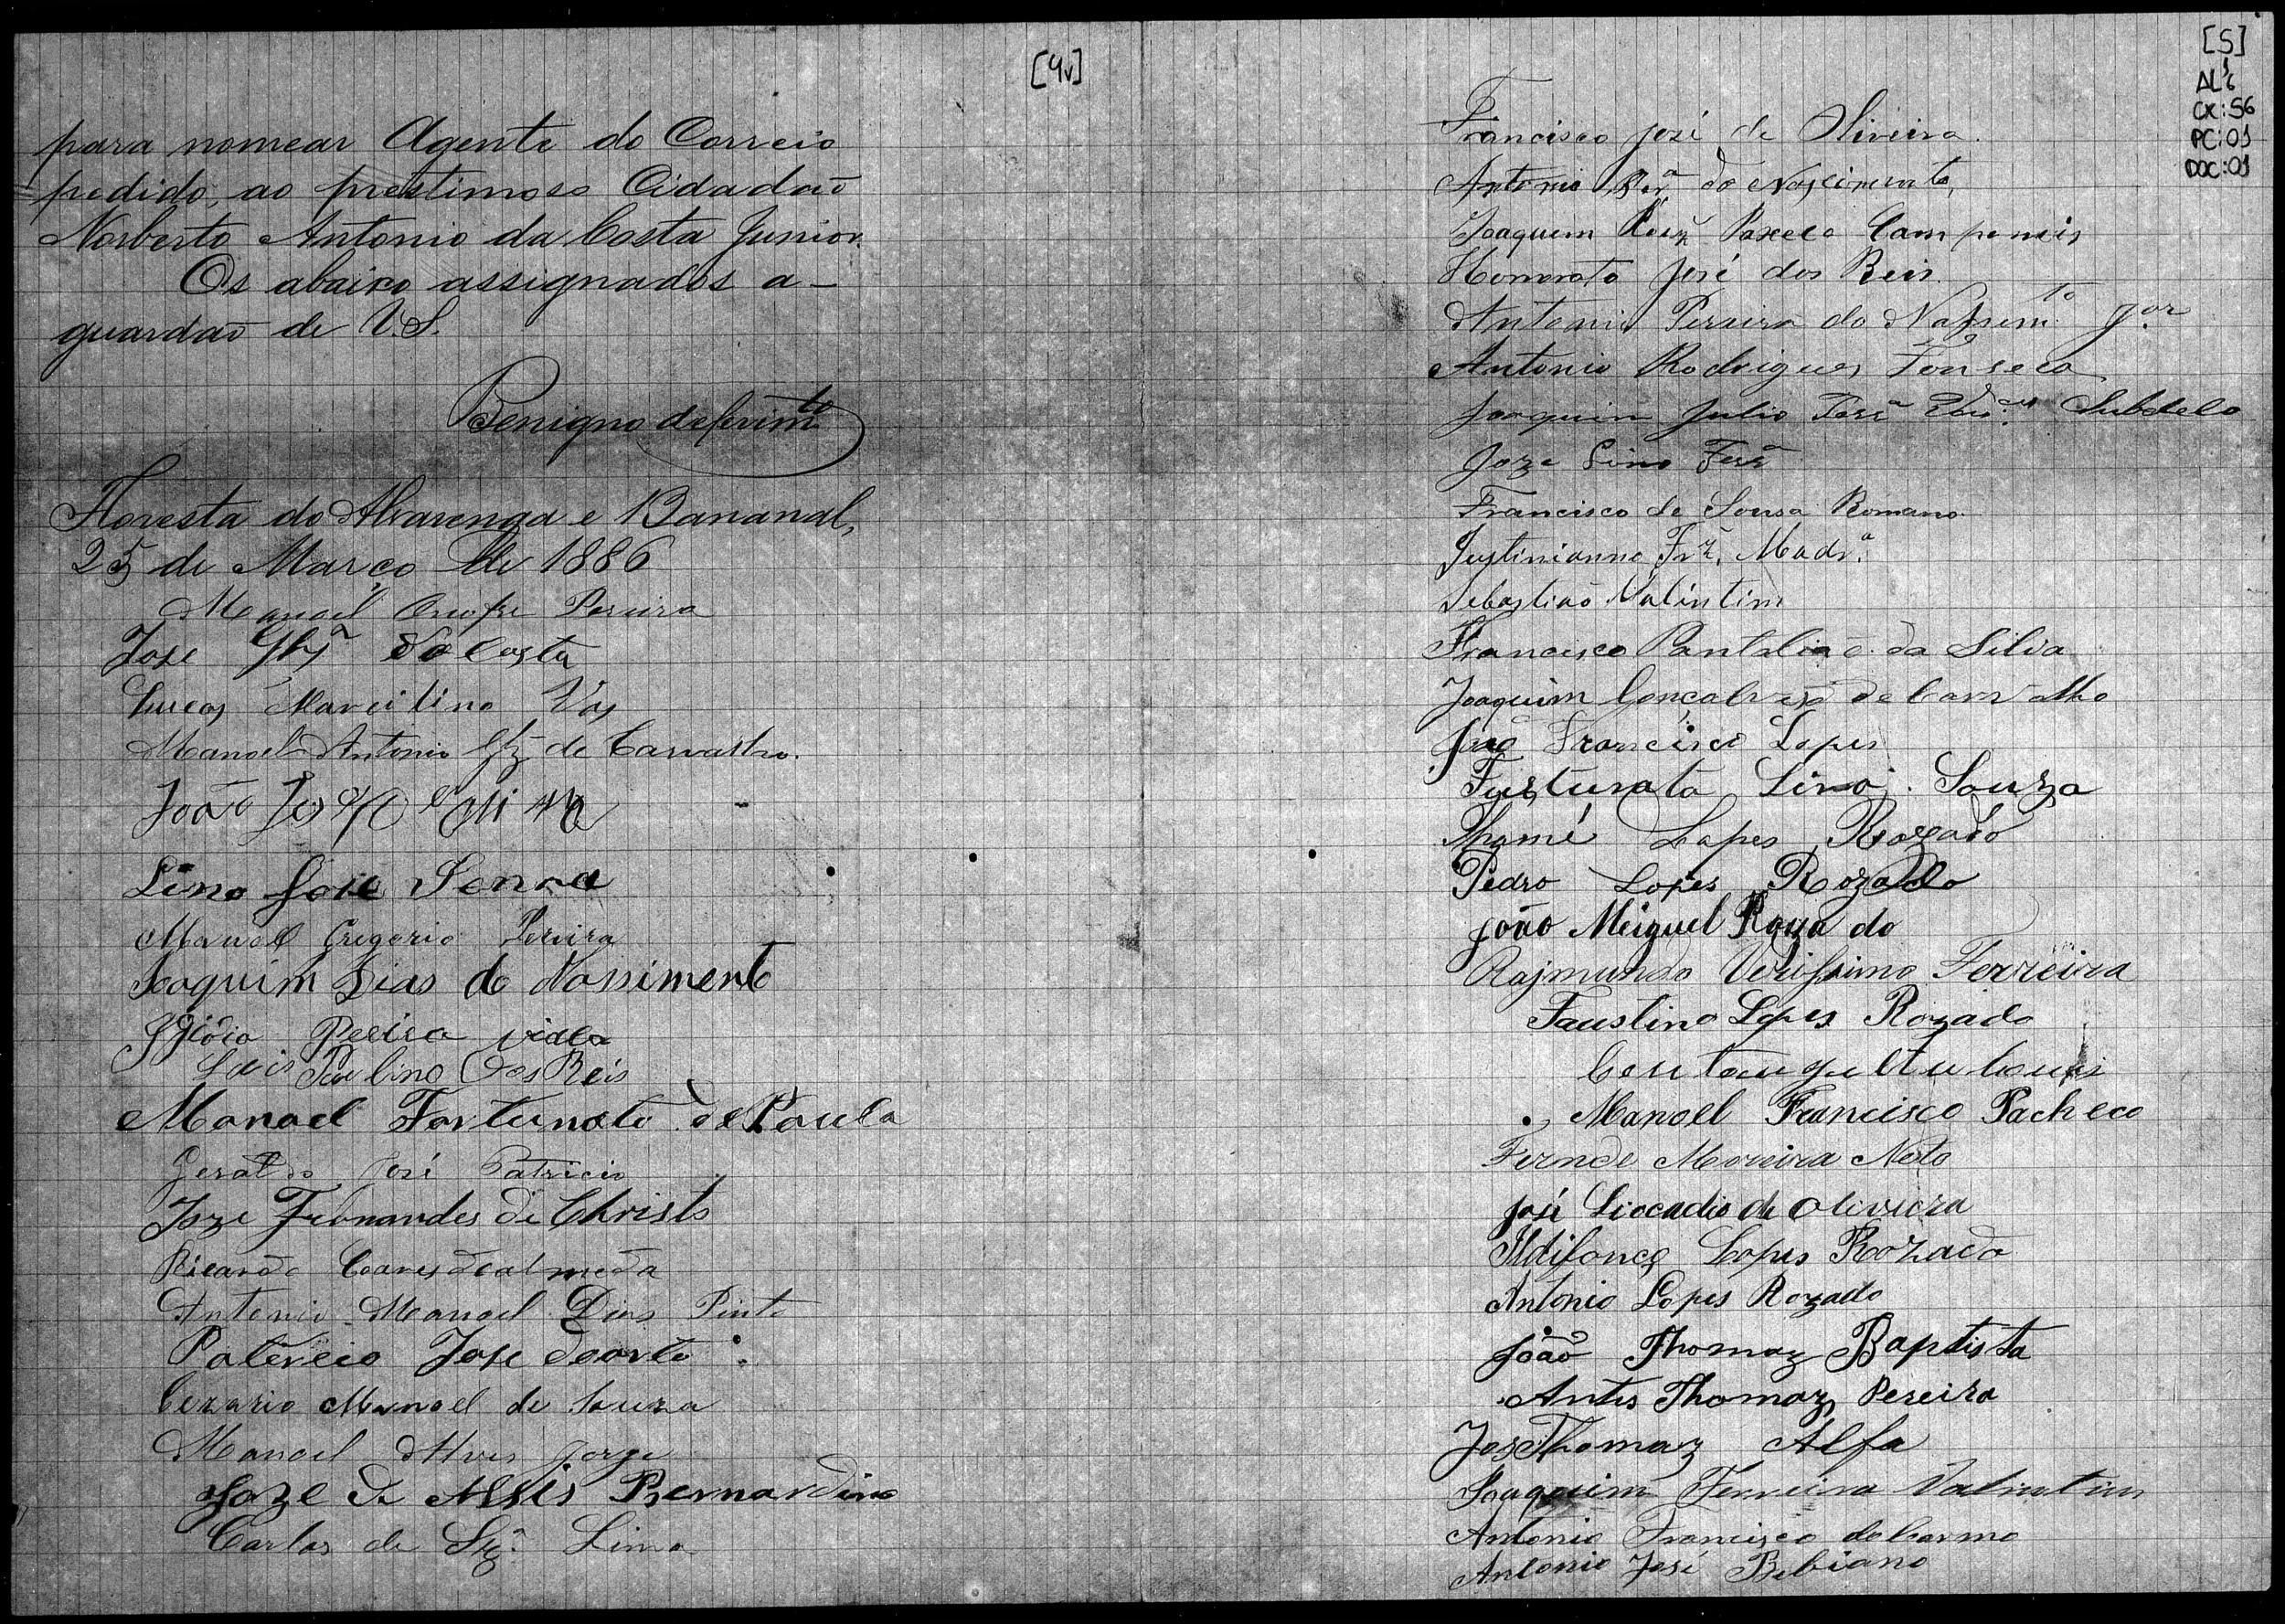 [4v]
para nomear Agente do Correio
pedido, ao prestimoso Cidadão
Norberto Antonio da Costa Junior.
Os abaixo assignados a-
guardão de V.S.
Benigno deferimto
Floresta do Alvarenga e Bananal,
25 de Março de 1886
Manoel Onofre Pereira
Jose da Costa
Lucas Marcilino
Manoel Antonio de Carvalho.
João
Lino José Senna
Manoel Gregorio Pereira
Joaquim Dias do Nassimento
Pereira
Luis Paulino dos Reis
Manoel Fortunato de Paula
Geraldo José Patricio
Joze Fernandes di Christo
Ricardo dealmeda
Antonio Manoel Dias Pinto
Jose
Cezario Manoel de Souza
Manoel Alves Jorge
Joze de Assis Bernardino
Carlos de Lima
[5]
AL6
CX:56
PC:01
DOC:01
Francisco José de Oliveira.
Antonio do Nascimento,
Joaquim
Honorato José dos Reis.
Antonio Pereira do Nassimto Jor
Antonio Rodrigues Fonseca
Joaquim Julio Subdelo
Joze Lino Ferra
Francisco de Sousa Romano
Justinianno Frz. Madra
Sebastião Valintim
Francisco Pantalião da Silva
Joaquim Gonçalves de Carvalho
João Francisco Lopes
Furtunato Lino Souza
Thomé Lopes Rozado
Pedro Lopes Rozado
João Meiguel Roza do
Rajmundo Verissimo Ferreira
Faustino Lopes Rozado
Manoel Francisco Pacheco
Moreira Neto
José Liocadio de Oliveira
Ildifonço Lopes Rozado
Antonio Lopes Rozado
João Thomaz Baptista
Thomaz Pereira
Thomaz Alfa
Joaquim Ferreira Valentim
Antonio Francisco do Carmo
Antonio José Bibiano